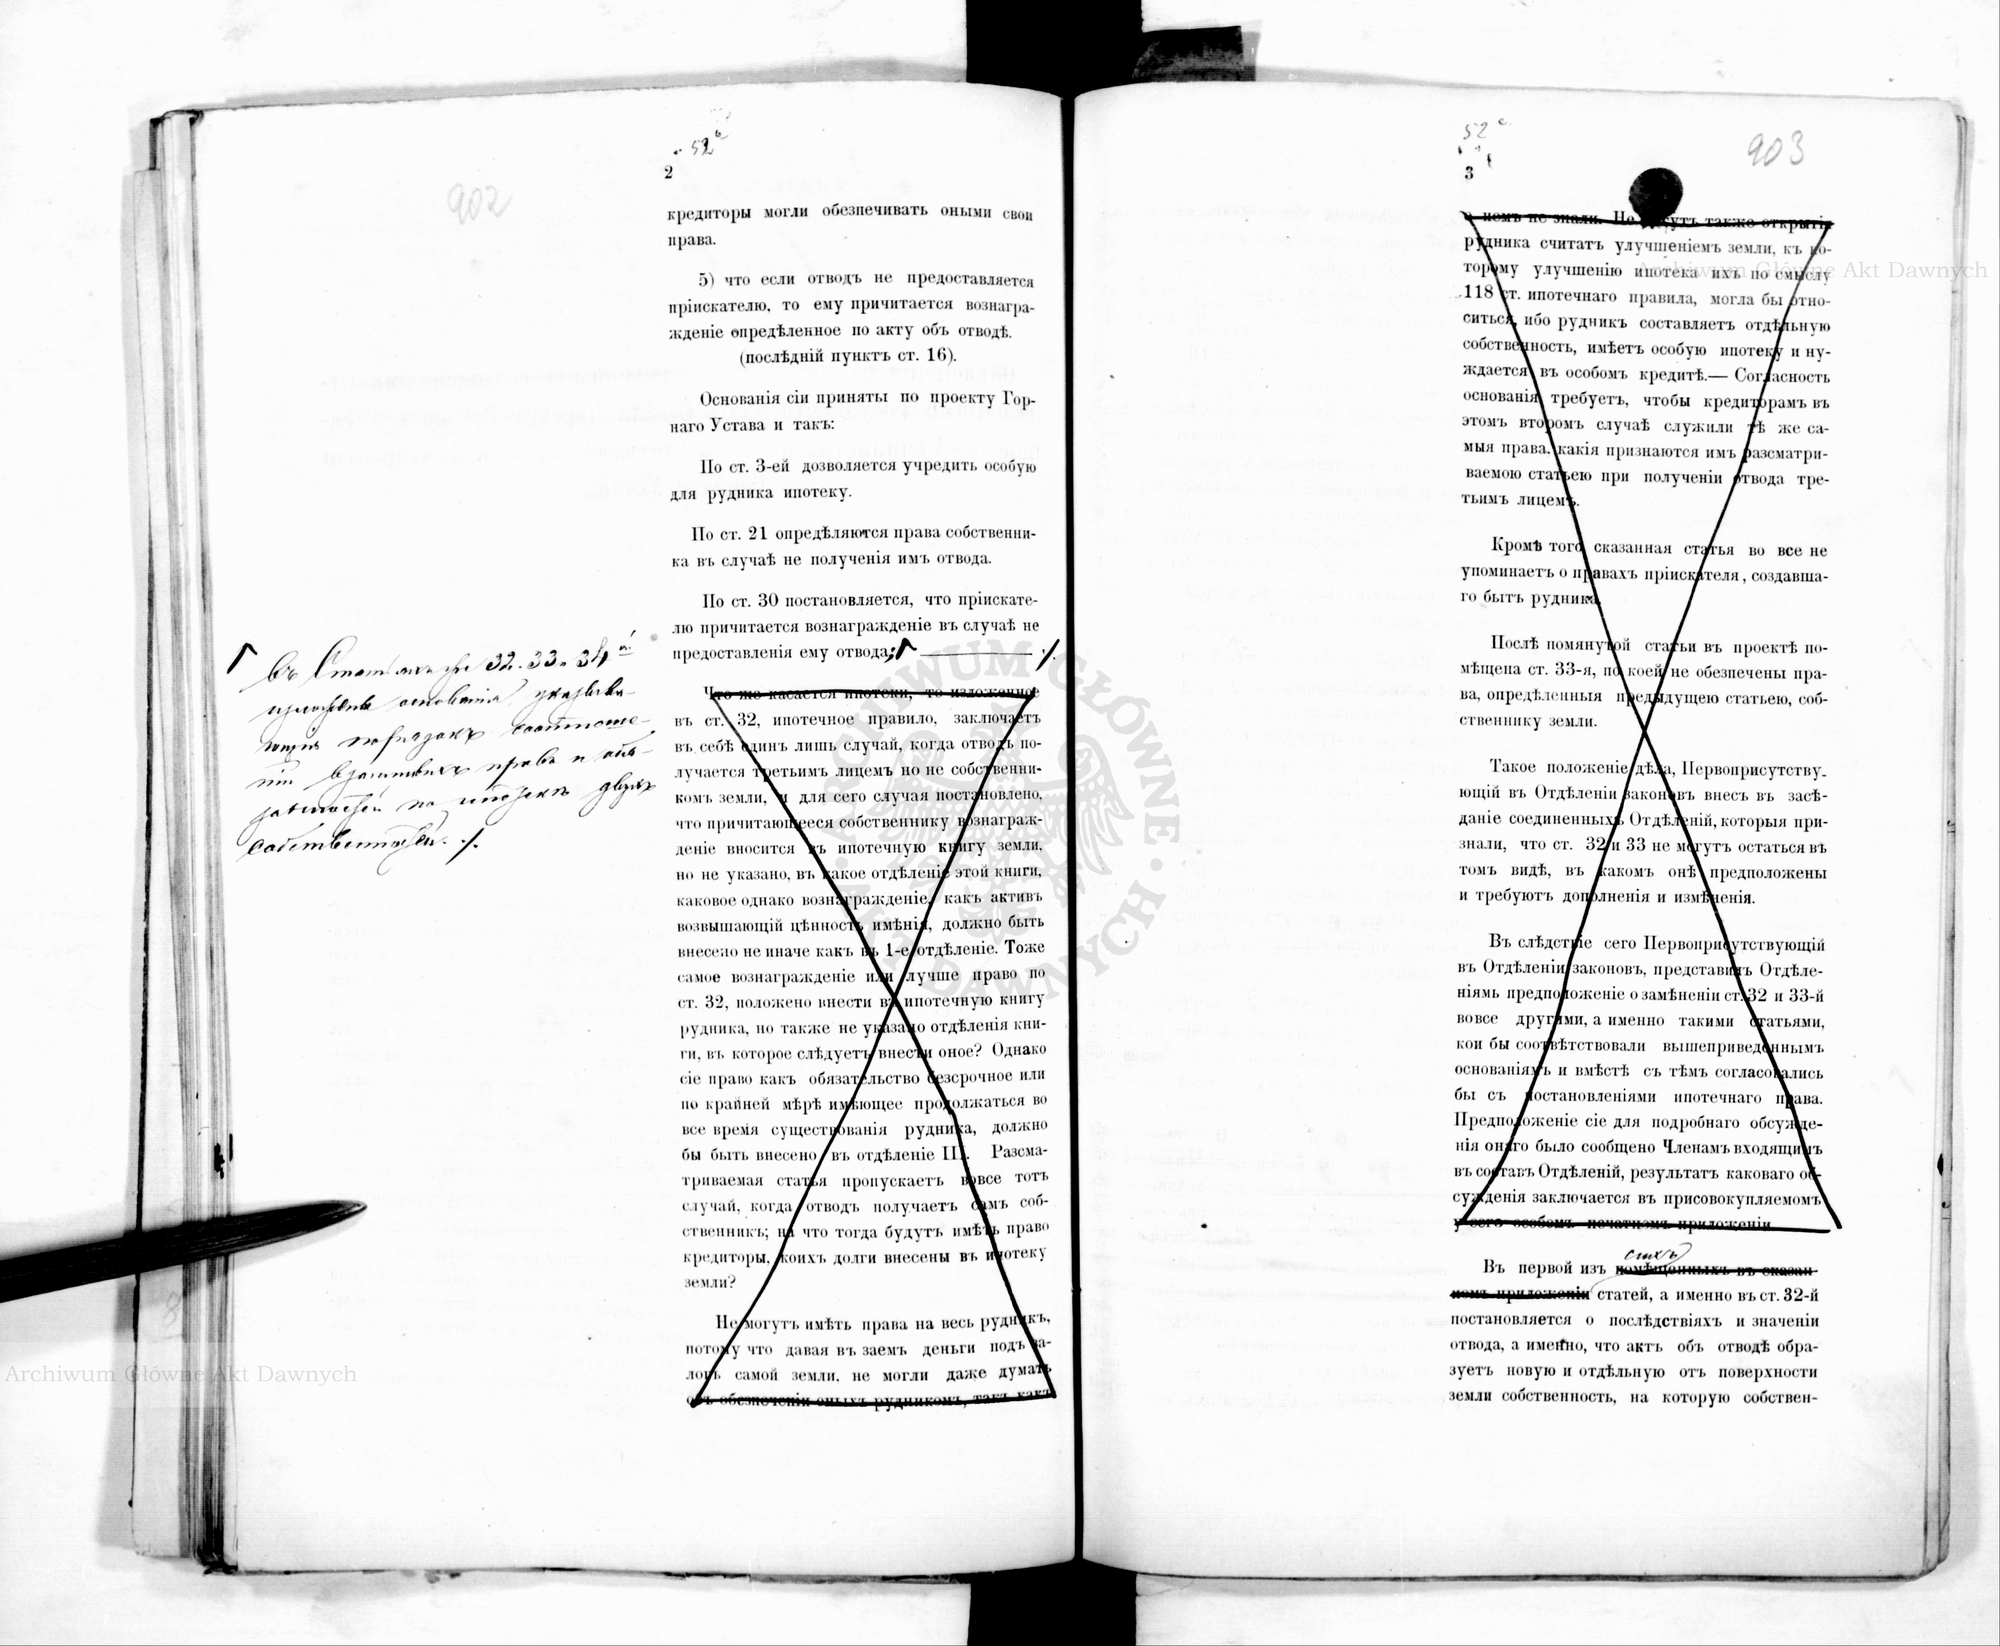 52 b
2
902
кредиторы могли обезпечивать оными свои
права.
5) что если отводъ не предоставляется
пріискателю, то ему причитается вознагра-
жденіе опредѣленное по акту объ отводѣ.
(послѣдній пунктъ ст. 16).
Основанія сіи приняты по проекту Гор-
наго Устава и такъ:
По ст. 3-ей дозволяется учредить особую
для рудника ипотеку.
По ст. 21 опредѣляются права собственни-
ка въ случаѣ не полученія имъ отвода.
По ст. 30 постановляется, что пріискате-
лю причитается вознагражденіе въ случаѣ не
предоставленія ему отвода;
Въ Статьяхъ же 32. 33 и 34й
изложены основанія указыва-
ющія порядокъ соотноше-
ній взаимныхъ правъ и обя-
занностей по ипотекѣ двухъ
собственностей. ./.
Что же касается ипотеки, то изложенное
въ ст. 32, ипотечное правило, заключаетъ
въ себѣ одинъ лишь случай, когда отводъ по-
лучается третьимъ лицемъ но не собственни-
комъ земли, и для сего случая постановлено,
что причитающееся собственнику вознаграж-
деніе вносится въ ипотечную книгу земли,
но не указано, въ какое отдѣленіе этой книги,
каковое однако вознагражденіе, какъ активъ
возвышающій цѣнность имѣнія, должно быть
внесено не иначе какъ въ 1-е отдѣленіе. Тоже
самое вознагражденіе или лучше право по
ст. 32, положено внести въ ипотечную книгу
рудника, но также не указано отдѣленія кни-
ги, въ которое слѣдуетъ внести оное? Однако
сіе право какъ обязательство безсрочное или
по крайней мѣрѣ имѣющее продолжаться во
все время существованія рудника, должно
бы быть внесено въ отдѣленіе III. Разсма-
триваемая статья пропускаетъ вовсе тотъ
случай, когда отводъ получаетъ самъ соб-
ственникъ; на что тогда будутъ имѣть право
кредиторы, коихъ долги внесены въ ипотеку
земли?
Не могутъ имѣть права на весь рудникъ,
потому что давая въ заемъ деньги подъ за-
логъ самой земли, не могли даже думать
объ обезпеченіи оныхъ рудникомъ, такъ какъ
52 c
903
3
о немъ не знали. Не могутъ также открытія
рудника считать улучшеніемъ земли, къ ко-
торому улучшенію ипотека ихъ по смыслу
118 ст. ипотечнаго правила, могла бы отно-
ситься, ибо рудникъ составляетъ отдѣльную
собственность, имѣетъ особую ипотеку и ну-
ждается въ особомъ кредитѣ.— Согласность
основанія требуетъ, чтобы кредиторамъ въ
этомъ второмъ случаѣ служили тѣ же са-
мыя права, какія признаются имъ разсматри-
ваемою статьею при полученіи отвода тре-
тьимъ лицемъ.
Кромѣ того сказанная статья во все не
упоминаетъ о правахъ пріискателя, создавша-
го бытъ рудника.
Послѣ помянутой статьи въ проектѣ по-
мѣщена ст. 33-я, по коей не обезпечены пра-
ва, опредѣленныя предыдущею статьею, соб-
ственнику земли.
Такое положеніе дѣла, Первоприсутству-
ющій въ Отдѣленіи законовъ внесъ въ засѣ-
даніе соединенныхъ Отдѣленій, которыя при-
знали, что ст. 32 и 33 не могутъ остаться въ
томъ видѣ, въ какомъ онѣ предположены
и требуютъ дополненія и измѣненія.
Въ слѣдствіе сего Первоприсутствующій
въ Отдѣленіи законовъ, представилъ Отдѣле-
ніямъ предположеніе о замѣненіи ст. 32 и 33-й
вовсе другими, а именно такими статьями,
кои бы соотвѣтствовали вышеприведеннымъ
основаніямъ и вмѣстѣ съ тѣмъ согласовались
бы съ постановленіями ипотечнаго права.
Предположеніе сіе для подробнаго обсужде-
нія онаго было сообщено Членамъ входящимъ
въ составъ Отдѣленій, результатъ каковаго об-
сужденія заключается въ присовокупляемомъ
у сего особомъ печатномъ приложеніи.
сихъ
Въ первой изъ помѣщенныхъ въ сказан-
номъ приложеніи статей, а именно въ ст. 32-й
постановляется о послѣдствіяхъ и значеніи
отвода, а именно, что актъ объ отводѣ обра-
зуетъ новую и отдѣльную отъ поверхности
земли собственность, на которую собствен-
Archiwum Główne Akt Dawnych
Archiwum Główne Akt Dawnych
ARCHIWUM GŁÓWNE AKT DAWNYCH